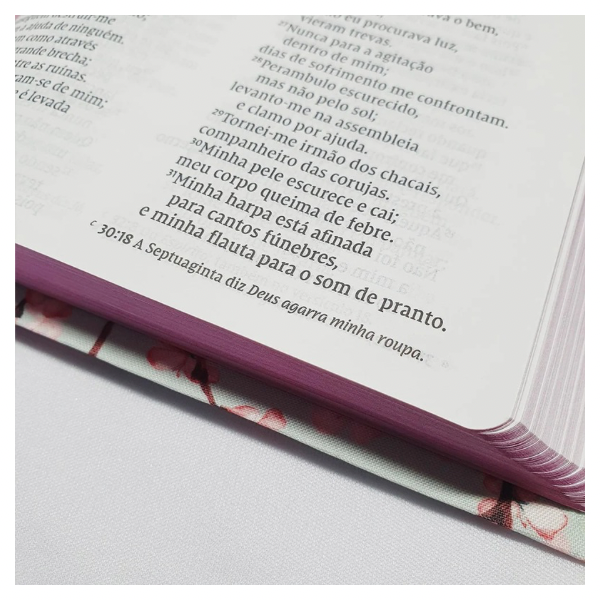 a ajuda de ninguém.
como através
grande brecha;
as ruínas.
ram-se de mim;
é levada
eu procurava luz,
vieram trevas.
27Nunca para a agitação
dentro de mim;
dias de sofrimento me confrontam.
28Perambulo escurecido,
mas não pelo sol;
levanto-me na assembleia
e clamo por ajuda.
29Tornei-me irmão dos chacais,
companheiro das corujas.
30Minha pele escurece e cai;
meu corpo queima de febre.
31Minha harpa está afinada
para cantos fúnebres,
e minha flauta para o som de pranto.
c 30:18 A Septuaginta diz Deus agarra minha roupa.